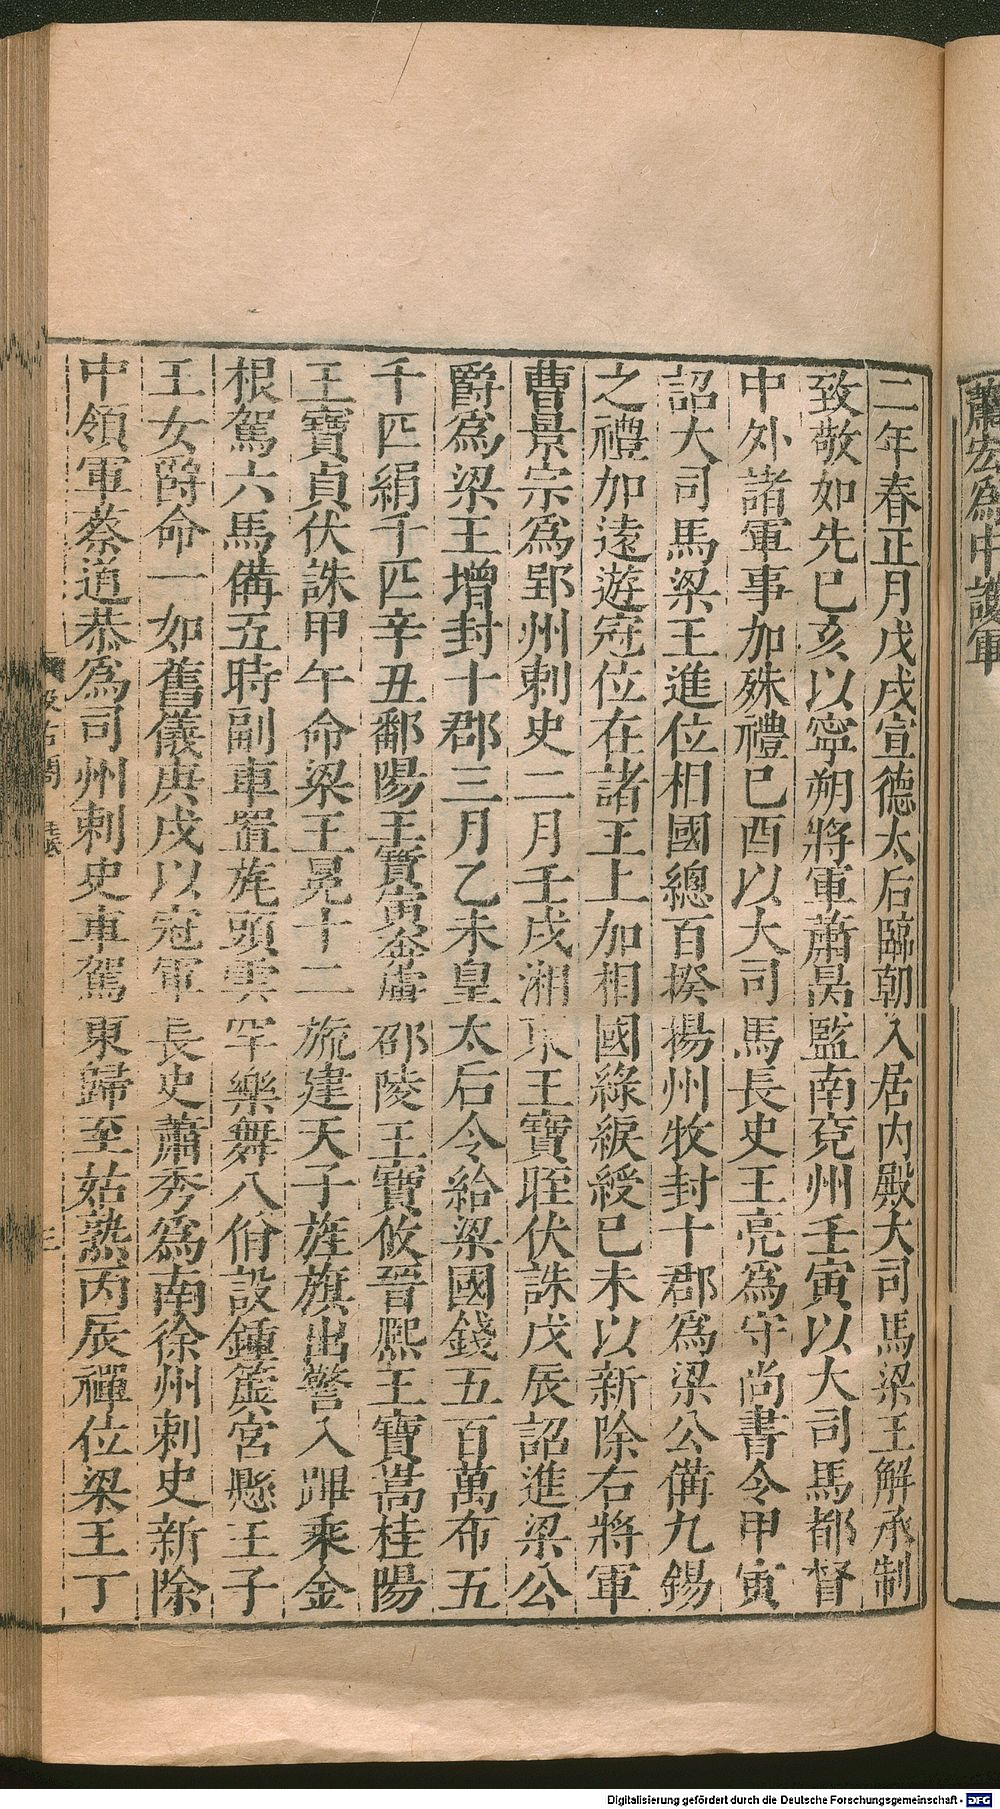 蕭宏爲中護軍
二年春正月戊戌宣德太后臨朝入居内殿大司馬梁王解承制
致敬如先已亥以寧朔將軍蕭昺監南兗州壬寅以大司馬都督
中外諸軍事加殊禮已酉以大司馬長史王亮爲守尚書令甲寅
詔大司馬梁王進位相國總百揆揚州牧封十郡爲梁公備九錫
之禮加遠遊冠位在諸王上加相國綠綟綬已未以新除右將軍
曹景宗爲郢州刺史二月壬戌湘東王寶晊伏誅戊辰詔進梁公
爵爲梁王增封十郡三月乙未皇太后令給梁國錢五百萬布五
千匹絹千匹辛丑鄱陽王寶寅奔虜邵陵王寶攸晉熙王寶嵩桂陽
王寶貞伏誅甲午命梁王冕十二旒建天子旌旗出警入蹕乘金
根駕六馬備五時副車置旄頭雲罕樂舞八佾設鍾簴宮懸王子
王女爵命一如舊儀庚戌以冠軍長史蕭秀爲南徐州刺史新除
中領軍蔡道恭爲司州刺史車駕東歸至姑熟丙辰禪位梁王丁
三
Digitalisierung gefördert durch die Deutsche Forschungsgemeinschaft - DFG